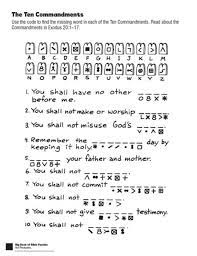 The Ten Commandments
Use the code to find the missing word in each of the Ten Commandments. Read about the
Commandments in Exodus 20:1–17.
A B C D E F G H I J K L M
N O P Q R S T U V W X Y Z
1. You shall have no other
before me.
2. You shall not make or worship
3. You shall not misuse God's
4. Remember the day by
keeping it holy.
5. your father and mother.
6. You shall not
7. You shall not commit
8. You shall not
9. You shall not give testimony.
10. You shall not